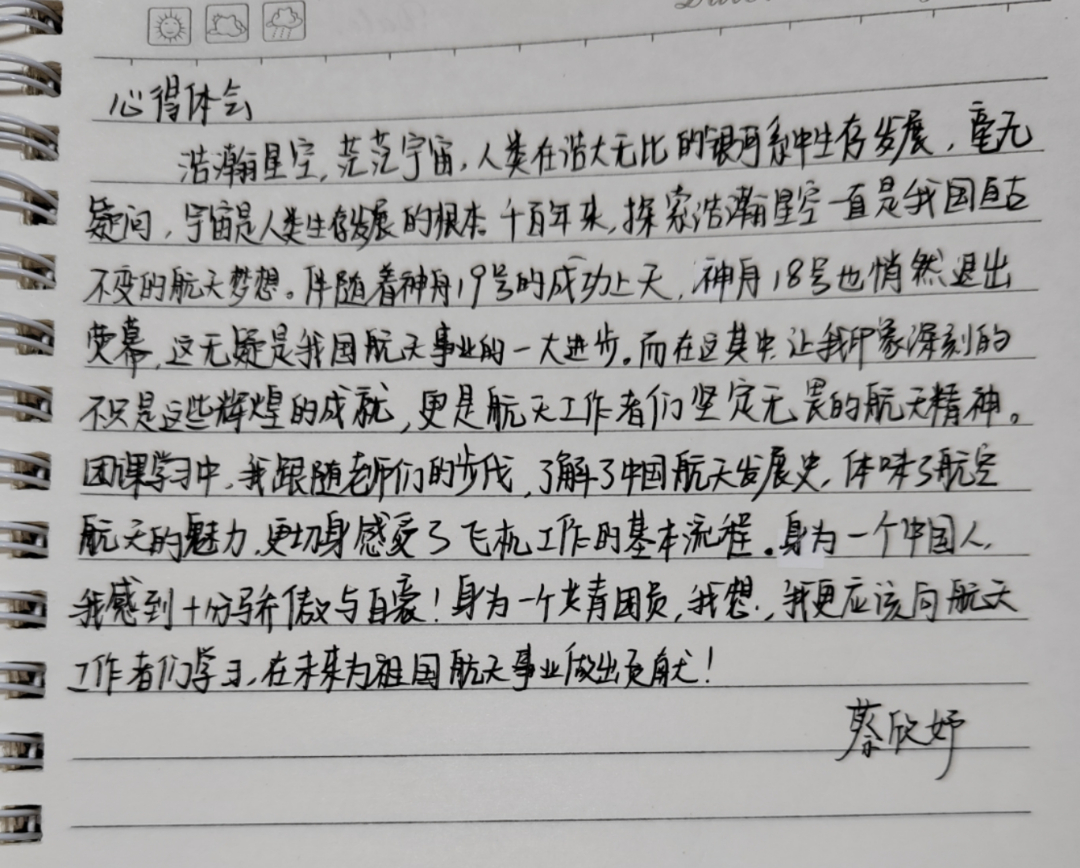 心得体会
浩瀚星空,茫茫宇宙,人类在浩大无比的银河系中生存发展,毫无
疑问,宇宙是人类生存发展的根本。千百年来,探索浩瀚星空一直是我国亘古
不变的航天梦想。伴随着神舟19号的成功上天,神舟18号也悄然退出
荧幕,这无疑是我国航天事业的一大进步。而在这其中,让我印象深刻的
不只是这些辉煌的成就,更是航天工作者们坚定无畏的航天精神。
团课学习中,我跟随老师们的步伐,了解了中国航天发展史,体味了航空
航天的魅力,更切身感受了飞机工作的基本流程。身为一个中国人,
我感到十分骄傲与自豪!身为一个共青团员,我想,我更应该向航天
工作者们学习,在未来为祖国航天事业做出贡献!
蔡欣妤